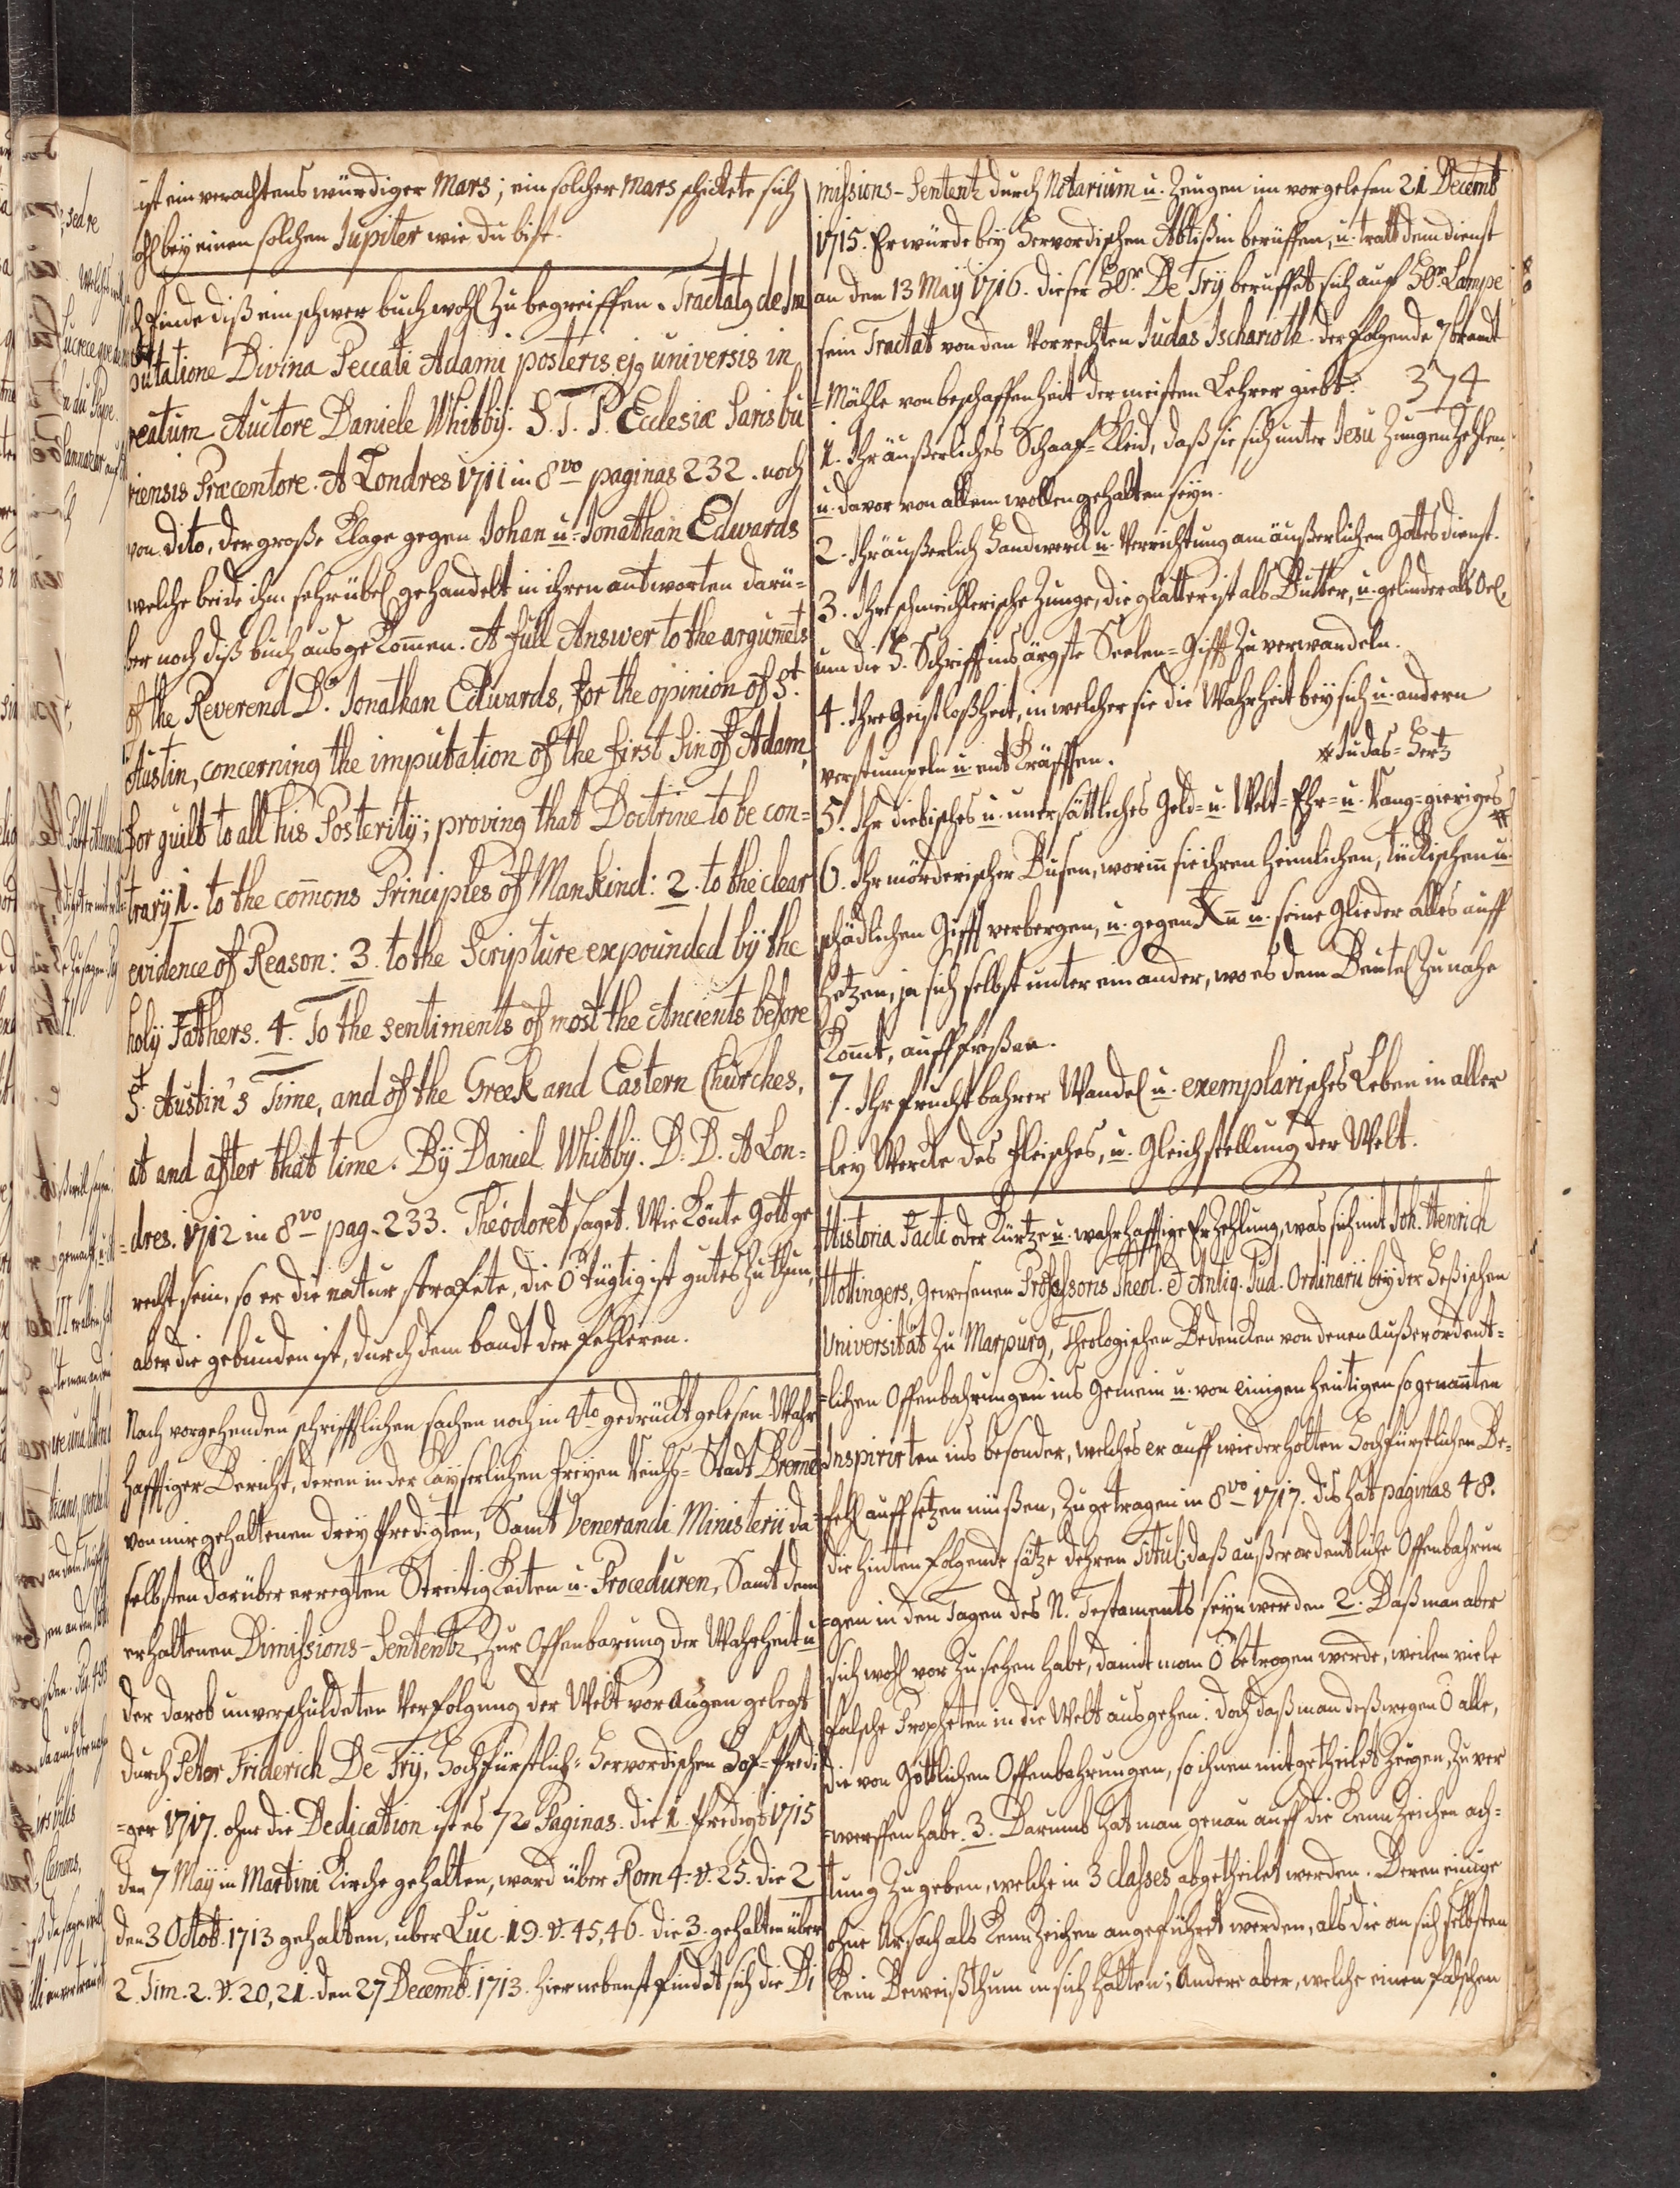 ist ein verachtens würdiger Mars; ein solcher Mars schickete sich
wohl bey einen solchen Jupiter wie du bist.
Ich finde diß ein schwer buch wohl zu begreiffen. Tractatq de Im
putatione Divina Peccati Adami posteris ejq universis in
reatum Auctore Daniele Whitby: S. T. P. Ecclesiæ Saris bu
riensis Præcentore. A Londres 1711 in 8vo paginas 232. noch
von dito, der große Klage gegen Johan u. Jonathan Edwards
welche beide ihn sehr übel gehandelt in ihren antworten darü=
ber noch diß buch ausgekom̅en. A full Answer to the argum̅ets
of the Reverend Dr. Jonathan Edwards, for the opinion of St.
Austin, concerning the imputation of the first Sin of Adam,
for guilt to all his Posterity; proving that Doctrine to be con=
trary 1. to the com̅ons Principles of Mankind: 2. to the clear
evidence of Reason: 3. to the Scripture expounded by the
holy Fathers. 4. To the sentiments of most the Ancients before
St. Austin's Time, and of the Greek and Eastern Churches,
at and after that time. By Daniel Whitby. D. D. A Lon=
=dres. 1712 in 8vo pag. 233. Théodoret saget. Wie könte Gott ge
recht sein, so er die natur strafete, die Ö tügtig ist gutes zu thun,
aber die gebunden ist, durch dem bandt der fehleren.
Nach vorgehenden schrifftlichen sachen noch in 4to gedruckt gelesen Wahr
hafftiger Bericht, deren in der Kayserlichen freyen Reichs-Stadt Brem̅
von mir gehaltenen drey Predigten, Samt Venerandi Ministerii da
selbsten darüber erregten Streitigkeiten u. Proceduren, Samt dem
erhaltenen Dimissions-Sententz, Zur Offenbarung der Wahrheit u
der darob unverschuldeten Verfolgung der Welt vor augen gelegt
durch Peter Friderich De Try, Hochfürstlich-Hervordischen Hof-Predi
=ger 1717. ohne die Dedication ist es 72 Paginas. die 1. Predigt 1715
den 7 May in Martini Kirche gehalten, ward über Rom 4. v. 25. die 2
den 3 Octob. 1713 gehalten, über Luc. 19. v. 45,46. die 3. gehalten über
2. Tim. 2. v. 20,21. den 27 Decemb. 1713. hier nebenst findet sich die Di
missions-Sententz durch Notarium u. Zeugen im vorgelesen 21 Decemb
1715. Er wurde bey Hervordischen Abtißin berüffen, u. tratt dem dienst
an den 13 May 1716. dieser Hr. De Try beruffet sich auf Hr. Lampe
sein Tractat von den Vorrechten Judas Ischarioth. der folgende 7
=Mähle von beschaffenheit der meisten Lehrer giebt: 374
1. Ihr äußerliches Schaaf-Kleid, daß sie sich unter Jesu Jungen zehlen,
u. davor von allem wollen gehalten seyn.
2. Ihr äußerlich Handwerck u. Verrichtung am äußerlichen Gottes dienst.
3. Ihre schmeichlerische Zunge, die glatter ist als Butter, u. gelinder als Oel,
um die H. Schrifft ins ärgste Seelen-Gifft zu verwandeln.
4. Ihre Geistloßheit, in welcher sie die Wahrheit bey sich u. andern
verstümpeln u. entkräfften.
# Judas-Hertz
5. Ihr diebisches u. unersättliches Geld- u. Welt-Ehr- u. Rang-gieriges #
6. Ihr mörderischer Busen, worin̅ sie ihren heimlichen, tückischen u.
schädlichen Gifft verbergen, u. gegen Xn̅ u. seine Glieder alles auff
hetzen, ja sich selbst unter einander, wo es dem Beutel zu nahe
kom̅t, aufffreßen.
7. Ihr fruchtbahrer Wandel u. exemplarisches Leben in aller
=ley Wercke des fleisches, u. Gleichstellung der Welt.
Historia Facti oder Kurtze u. wahrhafftige Erzehlung, was sich mit Joh. Henrich
Hottingers, gewesenen Professoris Theol. & Antiq. Jud. Ordinarii bey der Heßischen
Universität zu Marpurg, Theologischen Bedencken von denen außerordent=
=lichen Offenbahrungen ins Gemein u. von einigen heutigen so genan̅ten
Inspirirten ins besonder, welches er auff wiederholten Hochfürstlichen Be=
fehl auffsetzen müßen, zugetragen in 8vo 1717. dis hat paginas 48.
die hinten folgende sätze dehren Titul: daß außerordentliche Offenbahrun
=gen in den Tagen des N. Testaments seyn werden 2. Daß man aber
sich wohl vor zu sehen habe, damit man Ö betrogen werde, weilen viele
falsche Propheten in die Welt ausgehen: doch daß man deßwegen Ö alle,
die von Göttlichen Offenbahrungen, so ihnen mitgetheilet zeugen, zu ver
=werffen habe. 3. Darumb hat man genau auff die Kennzeichen ach=
tung zu geben, welche in 3 classes abgetheilet werden. Deren einige
ohne Ursach als Kennzeichen angeführet werden, als die an sich selbsten
kein Beweißthum in sich halten; Andere aber, welche einen falschen